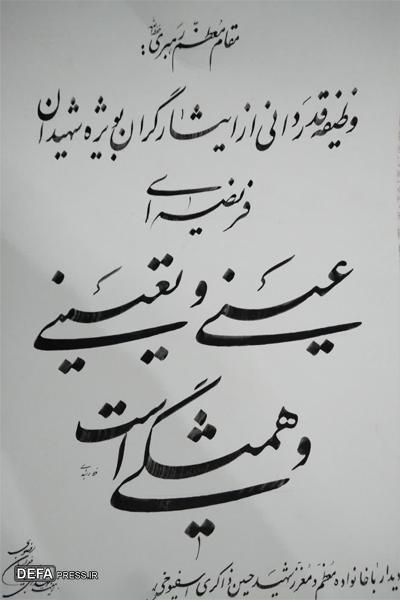 مقام معظم رهبری:
وظیفه قدردانی از ایثارگران بویژه شهیدان
فریضه ای
عینی و تعیینی
و همیشگی است
دیدار با خانواده معظم و معزز شهید حسین ذاکری اسفیوخی
DEFAPRESS.IR